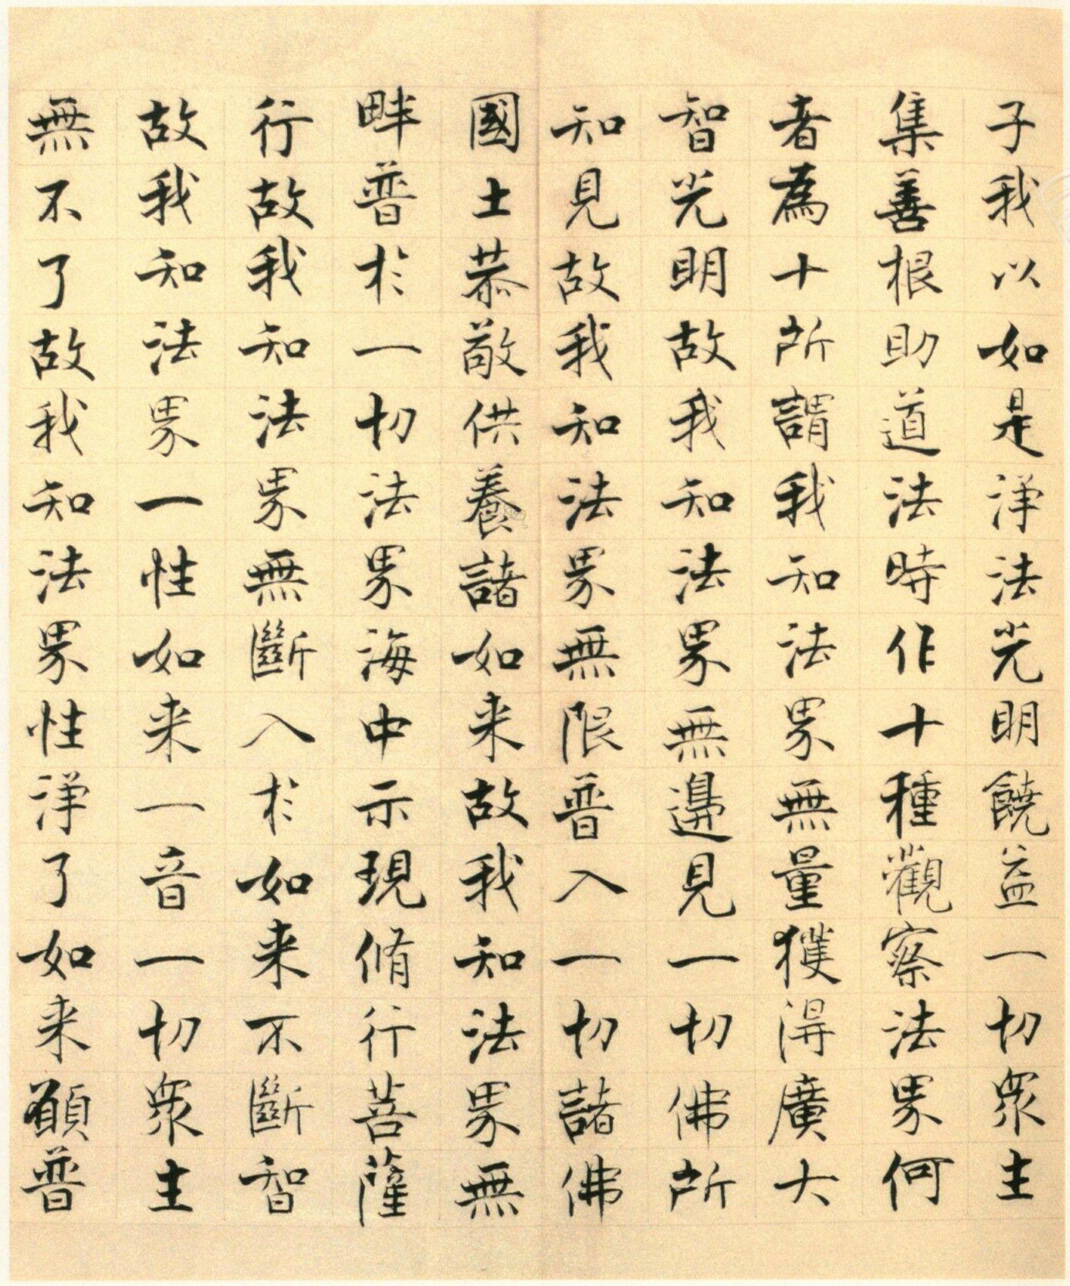 子我以如是淨法光明饒益一切眾生
集善根助道法時作十種觀察法界何
者為十所謂我知法界無量獲得廣大
智光明故我知法界無邊見一切佛所
知見故我知法界無限普入一切諸佛
國土恭敬供養諸如来故我知法界無
畔普於一切法界海中示現脩行菩薩
行故我知法界無斷入於如来不斷智
故我知法界一性如来一音一切眾生
無不了故我知法界性淨了如来願普